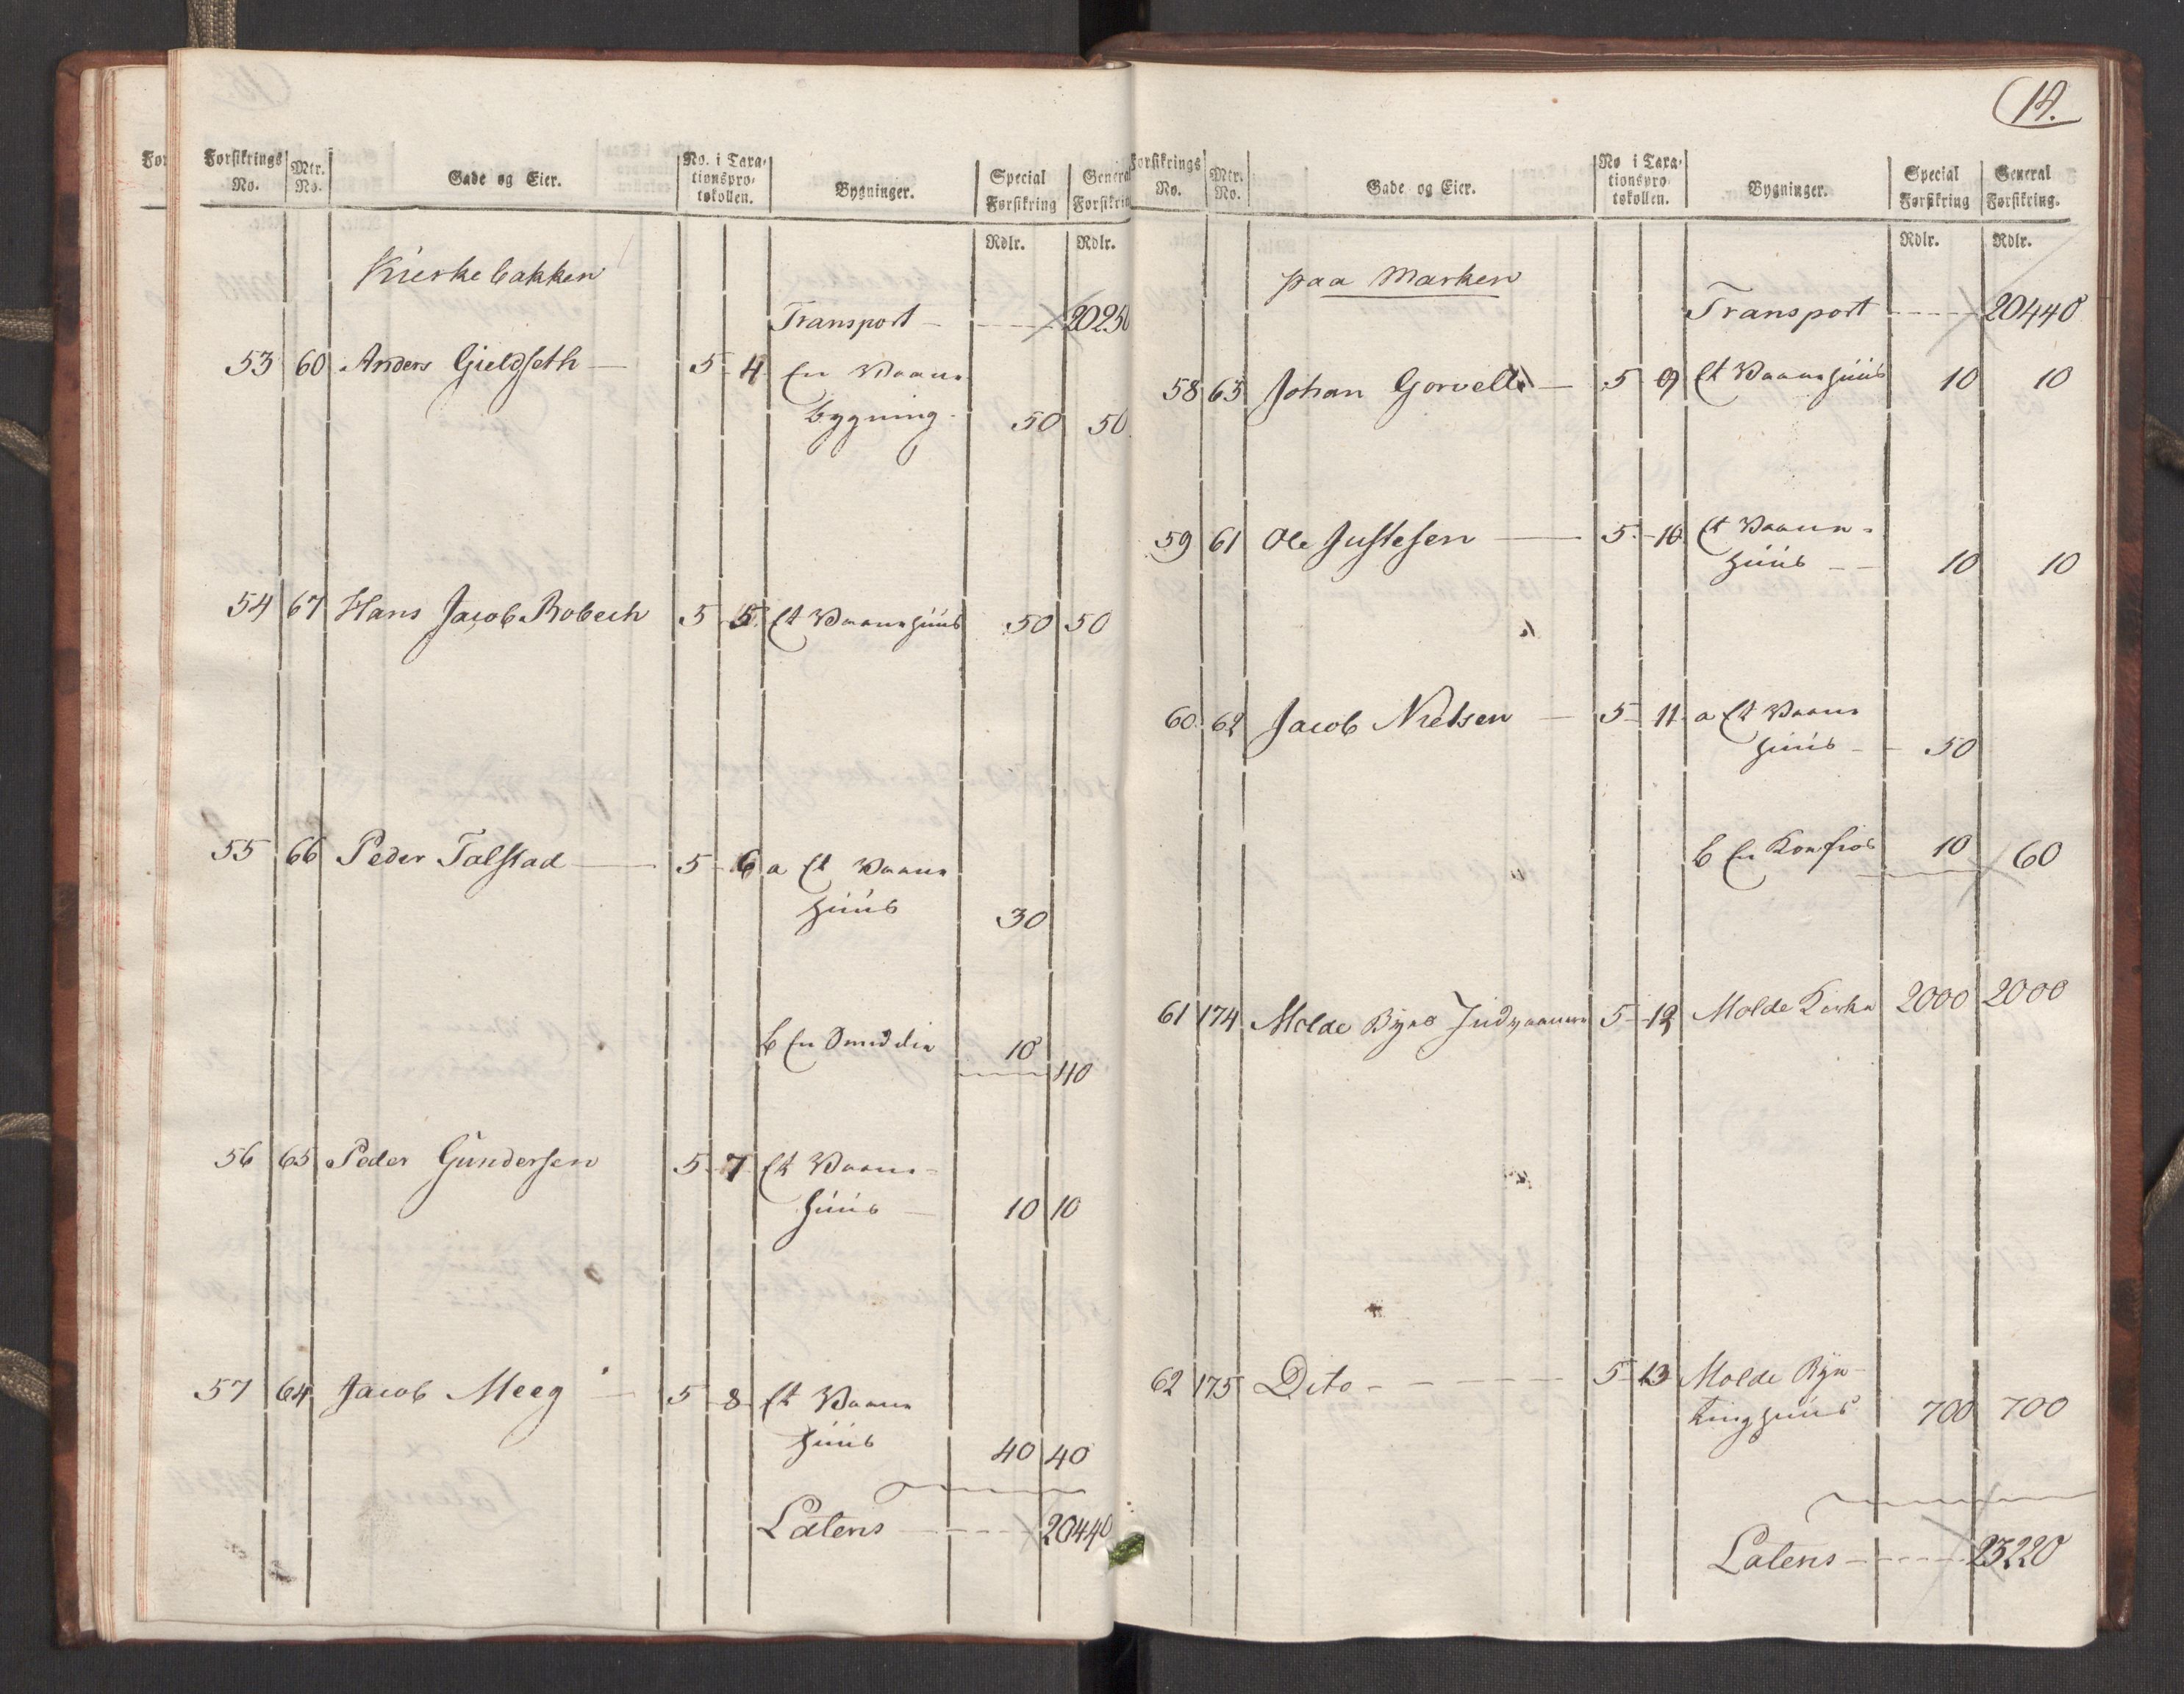 Forsikrings No. Mtr. No. Gade og Eier. No. i Taxationsprotokollen. Bygninger. Special Forsikring General Forsikring
Rdlr. Rdlr.
Kierkebakken
Transport - 20250
53 60 Anders Gieldseth - 5 - 4 En Vaanebygning - 50 50
54 67 Hans Jacob Robech 5 - 5 Et Vaanehuus 50 50
55 66 Peder Talstad - 5 - 6 a Et Vaane
huus 30
b En Smidie 10 40
56 65 Peder Gundersen 5 - 7 Et Vaane-
huus - 10 10
57 64 Jacob Meeg - 5 - 8 Et Vaane
huus 40 40
Latens - 20440
14.
Forsikrings No. Mtr. No. Gade og Eier. No i Taxationsprotokollen. Bygninger. Special Forsikring General Forsikring.
Rdlr. Rdlr.
paa Marken
Transport - 20440
58 63 Johan Gorvell - 5 - 9 Et Vaanehuus 10 10
59 61 Ole Justesen - 5 - 10 Et Vaane-
huus - 10 10
60 62 Jacob Nielsen - 5 - 11 a Et Vaane
huus - 50
b En 10 60
61 174 Molde Byes Indvaanere 5 - 12 Molde Kirke 2000 2000
62 175 Dito - 5 - 13 Molde Bye-
tinghuus 700 700
Latens - 23220